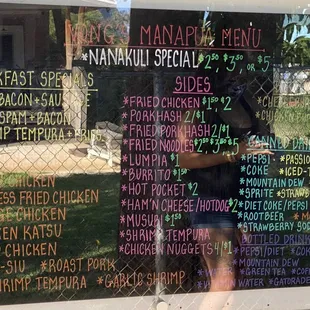 KONG'S MANAPUA MENU
*NANAKULI SPECIAL 2.50, 3.50, OR 5.
FAST SPECIALS
BACON + SAUSAGE
SPAM + BACON
MP TEMPURA +
CHICKEN
ESS FRIED CHICKEN
SE CHICKEN
EN KATSU
CHICKEN
-SIU *ROAST PORK
RIMP TEMPURA *GARLIC SHRIMP
SIDES
*FRIED CHICKEN $1.50 $2
*PORKHASH 2/$1
*FRIED PORKHASH 2/$1
*FRIED NOODLES
*LUMPIA $1
*BURRITO $1.50
*HOT POCKET $2
*HAM'N CHEESE/HOTDOG $2
*MUSUBI $1.50
*SHRIMP TEMPURA
*CHICKEN NUGGETS 4/$1
CANNED DRINKS
*PEPSI *PASSION
*COKE *ICED-T
*MOUNTAIN DEW
*SPRITE *STRAWB
*DIET COKE/PEPSI
*ROOTBEER
*STRAWBERRY SODA
BOTTLED DRINK
*PEPSI/DIET *COK
MOUNTAIN DEW
*GREEN TEA
WATER GATORADE